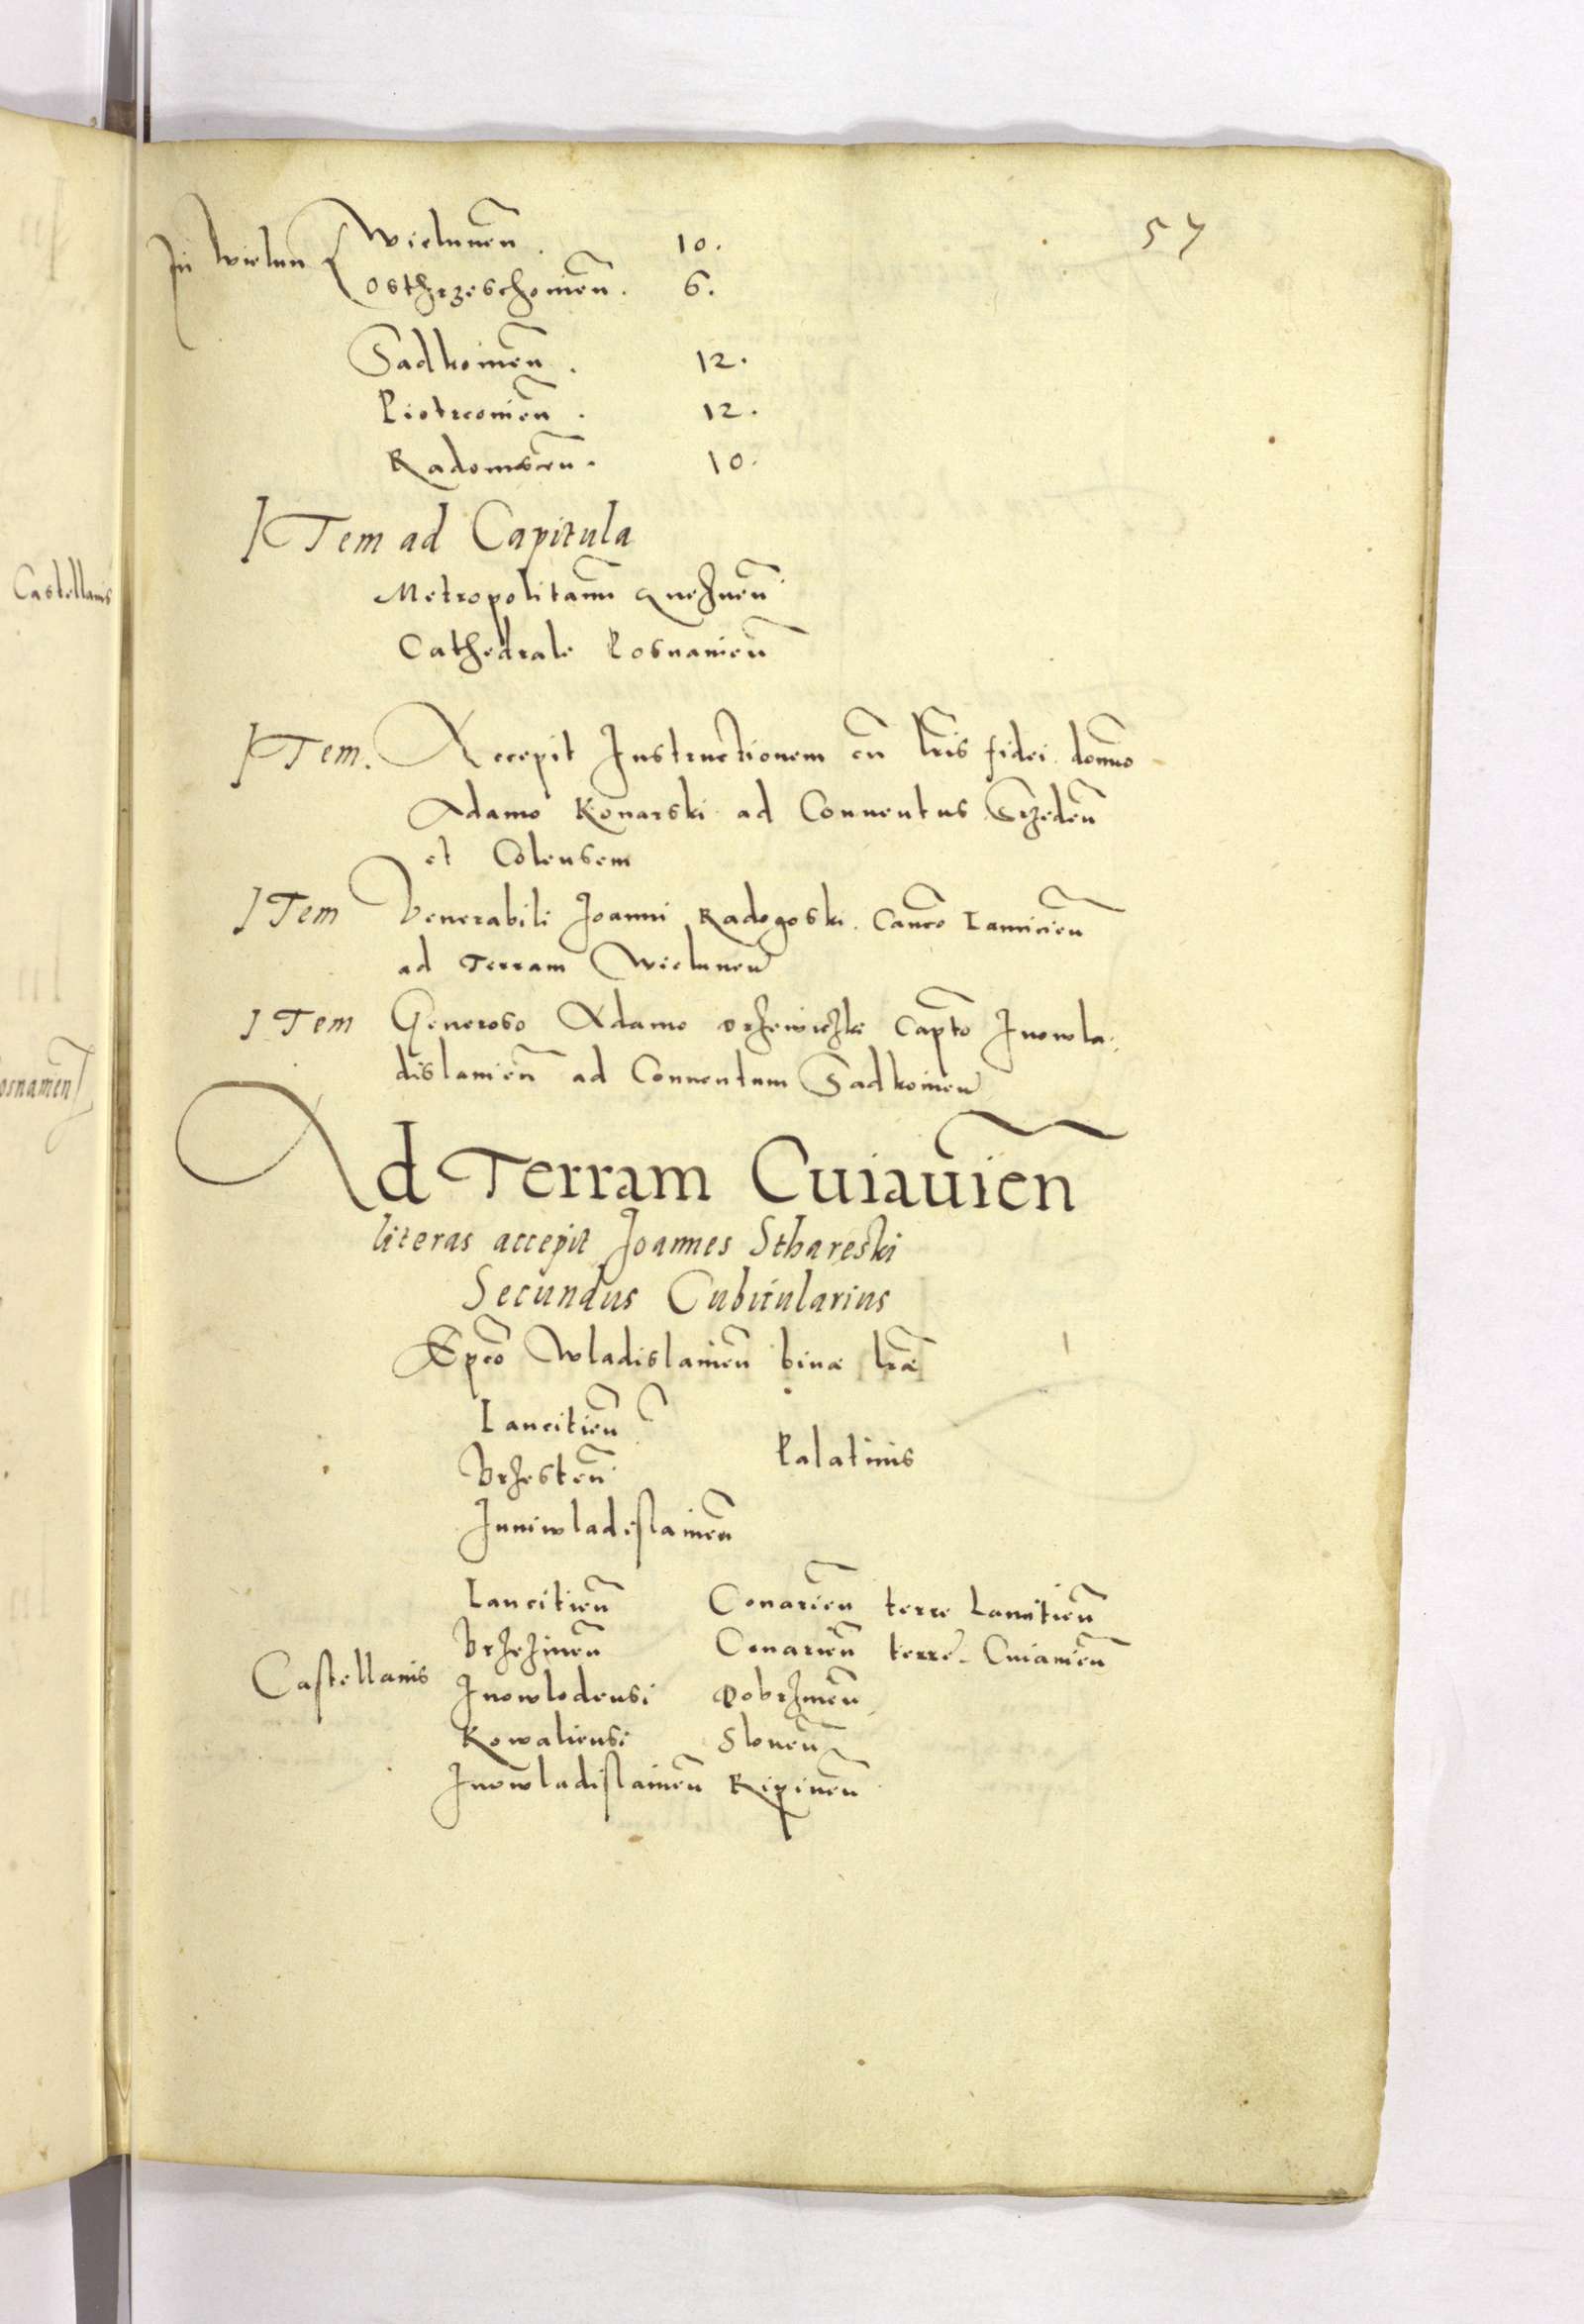 57
In Wielun { Wielunen̄. 10.
Osthrzeschouien̄. 6.
Sadkouien̄. 12.
Piotrcouien̄. 12.
Radomscen̄. 10.
ITem ad Capitula
Metropolitanū Gneznen̄
Cathedrale Posnanien̄
ITem. Accepit Instructionem cū lr̄is fidei domīno
Adamo Konarski ad Conuentus Srzeden̄
et Colensem
ITem Venerabili Joanni Radogoski Canco Lanicien̄
ad Terram Wielunen̄
ITem Generoso Adamo Drzewiczki Capto Inowla-
dislauien̄ ad Conuentum Sadkouien̄
Ad Terram Cuiauien̄
literas accepit Joannes Sthareski
Secundus Cubicularius
Ep̄co Wladislauien̄ binæ lr̄æ
Lancitien̄
Brzesten̄ Palatinis
Iuniwladislauien̄
Lancitien̄ Conarien̄ terre Lancitien̄
Brzezinen̄ Conarien̄ terre Cuiauien̄
Castellanis Inowlodensi Dobrzinen̄
Kowaliensi Slonen̄
Inowladislauien̄ Ripinen̄
Castellanis